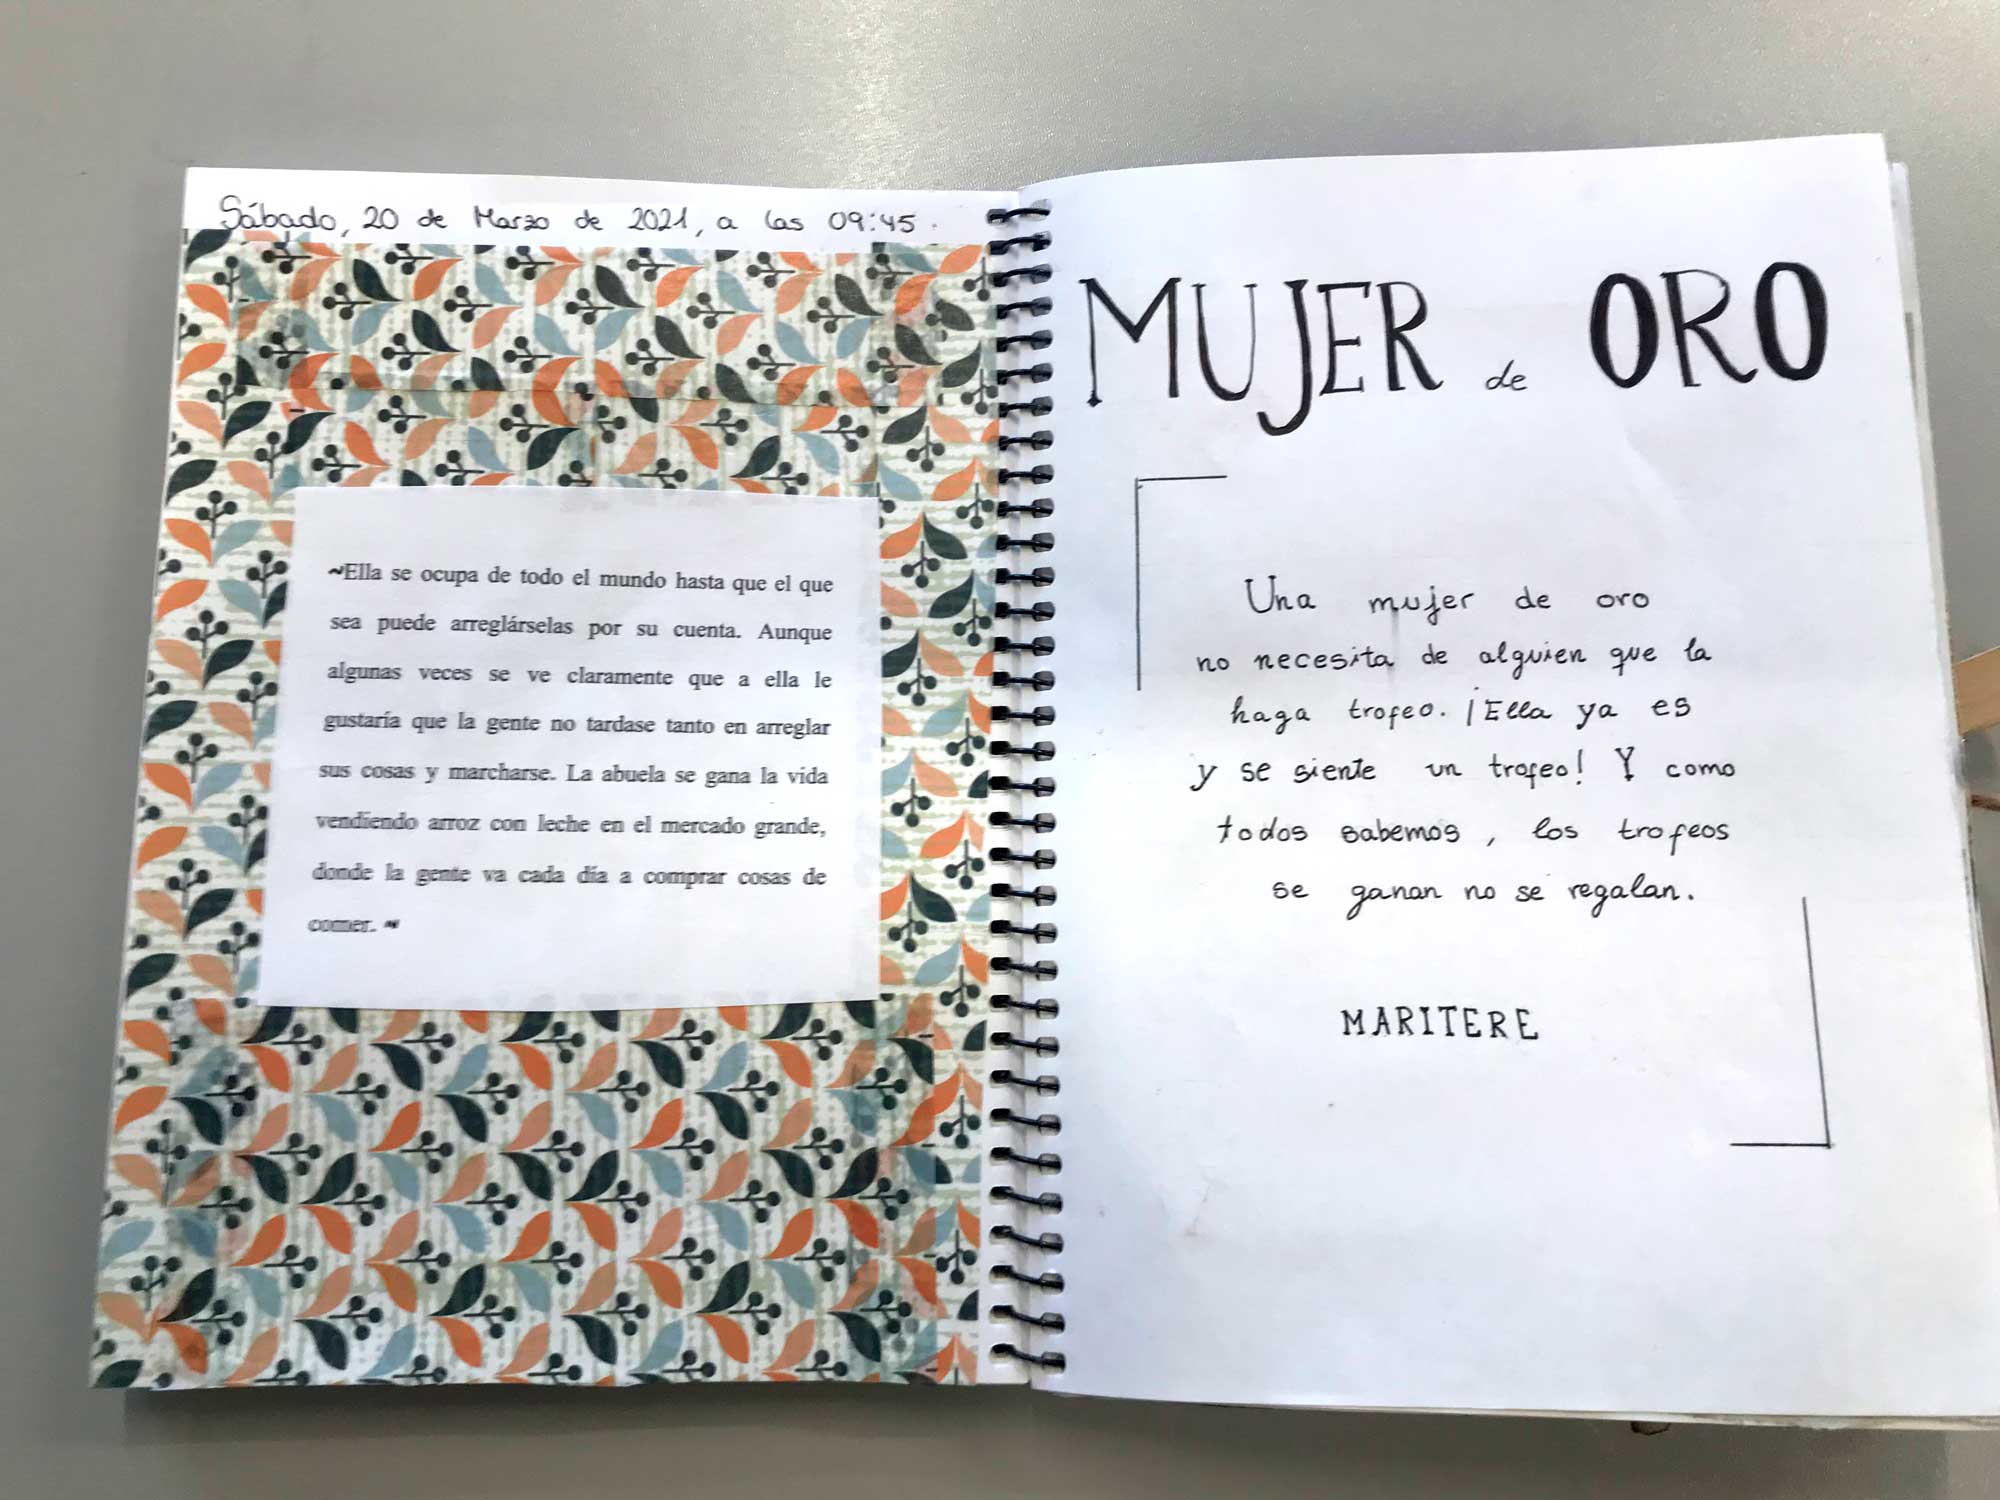 Sábado, 20 de Marzo de 2021, a las 09:45.
~Ella se ocupa de todo el mundo hasta que el que
sea puede arreglárselas por su cuenta. Aunque
algunas veces se ve claramente que a ella le
gustaría que la gente no tardase tanto en arreglar
sus cosas y marcharse. La abuela se gana la vida
vendiendo arroz con leche en el mercado grande,
donde la gente va cada día a comprar cosas de
comer. ~
MUJER de ORO
Una mujer de oro
no necesita de alguien que la
haga trofeo. ¡Ella ya es
y se siente un trofeo! Y como
todos sabemos, los trofeos
se ganan no se regalan.
MARITERE